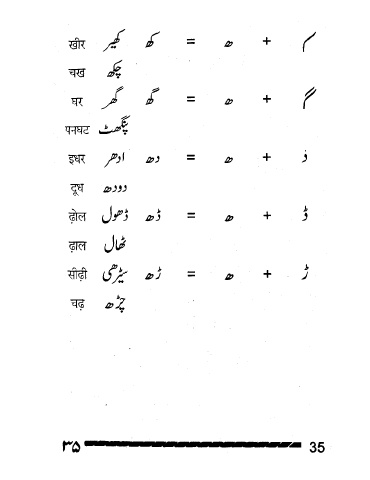 ک + ھ = کھ کھیر खीर
چکھ चख
گ + ھ = گھ گھر घर
پنگھٹ पनघट
د + ھ = دھ ادھر इधर
دودھ दूध
ڈ + ھ = ڈھ ڈھول ढ़ोल
ٹھال ढ़ाल
ڑ + ھ = ڑھ سیڑھی सीढ़ी
چڑھ चढ़
۳۵ 35